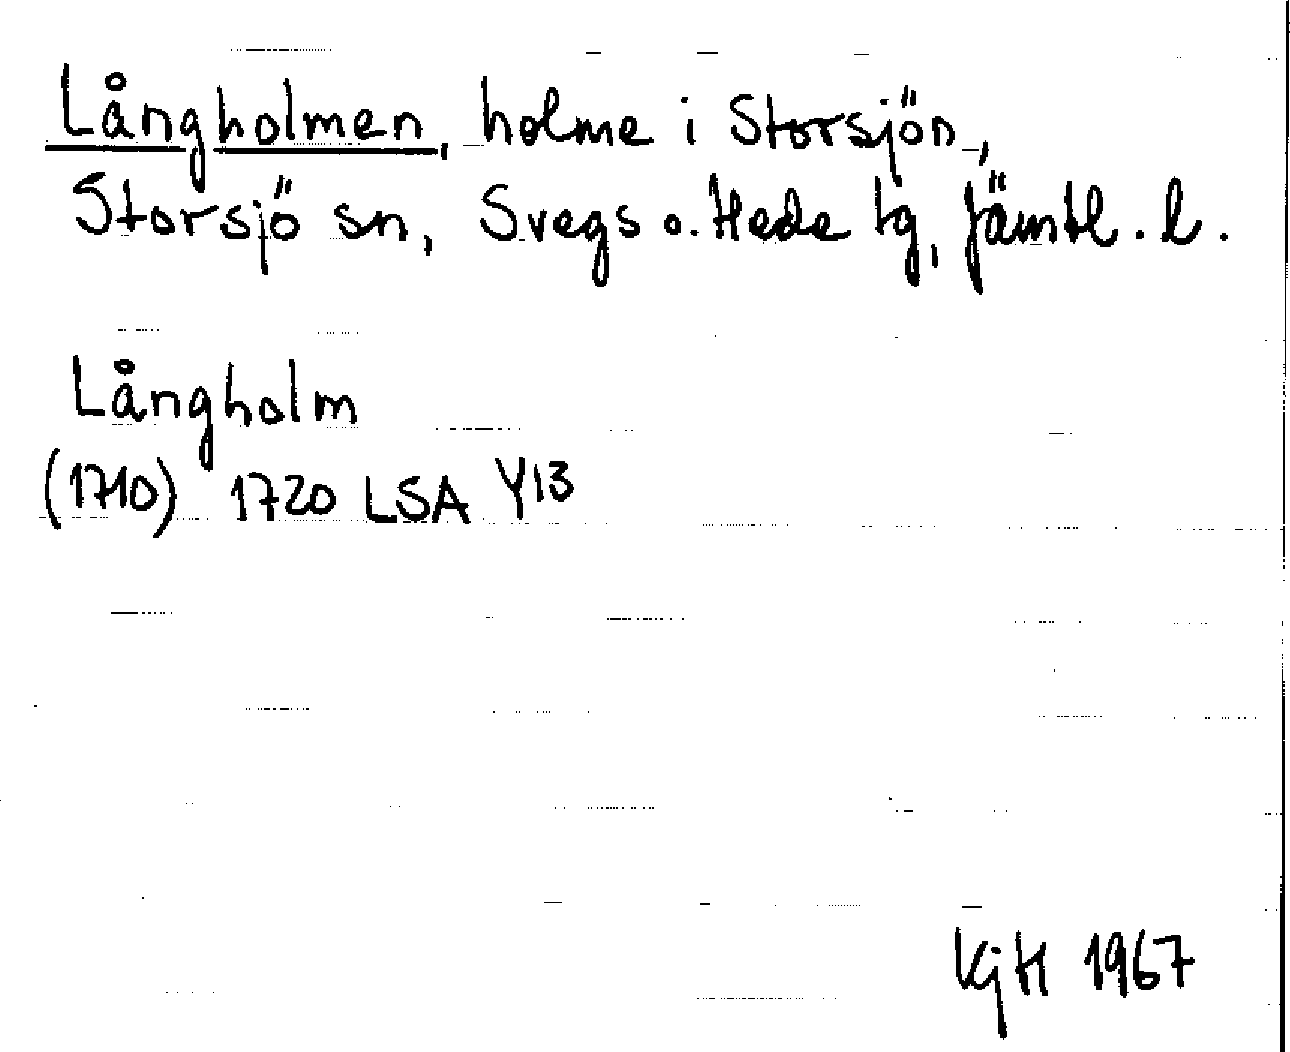 Långholmen, holme i Storsjön,
Storsjö sn, Svegs o. Hede tg, Jämtl. l.
Långholm
(1710) 1720 LSA Y13
KjH 1967